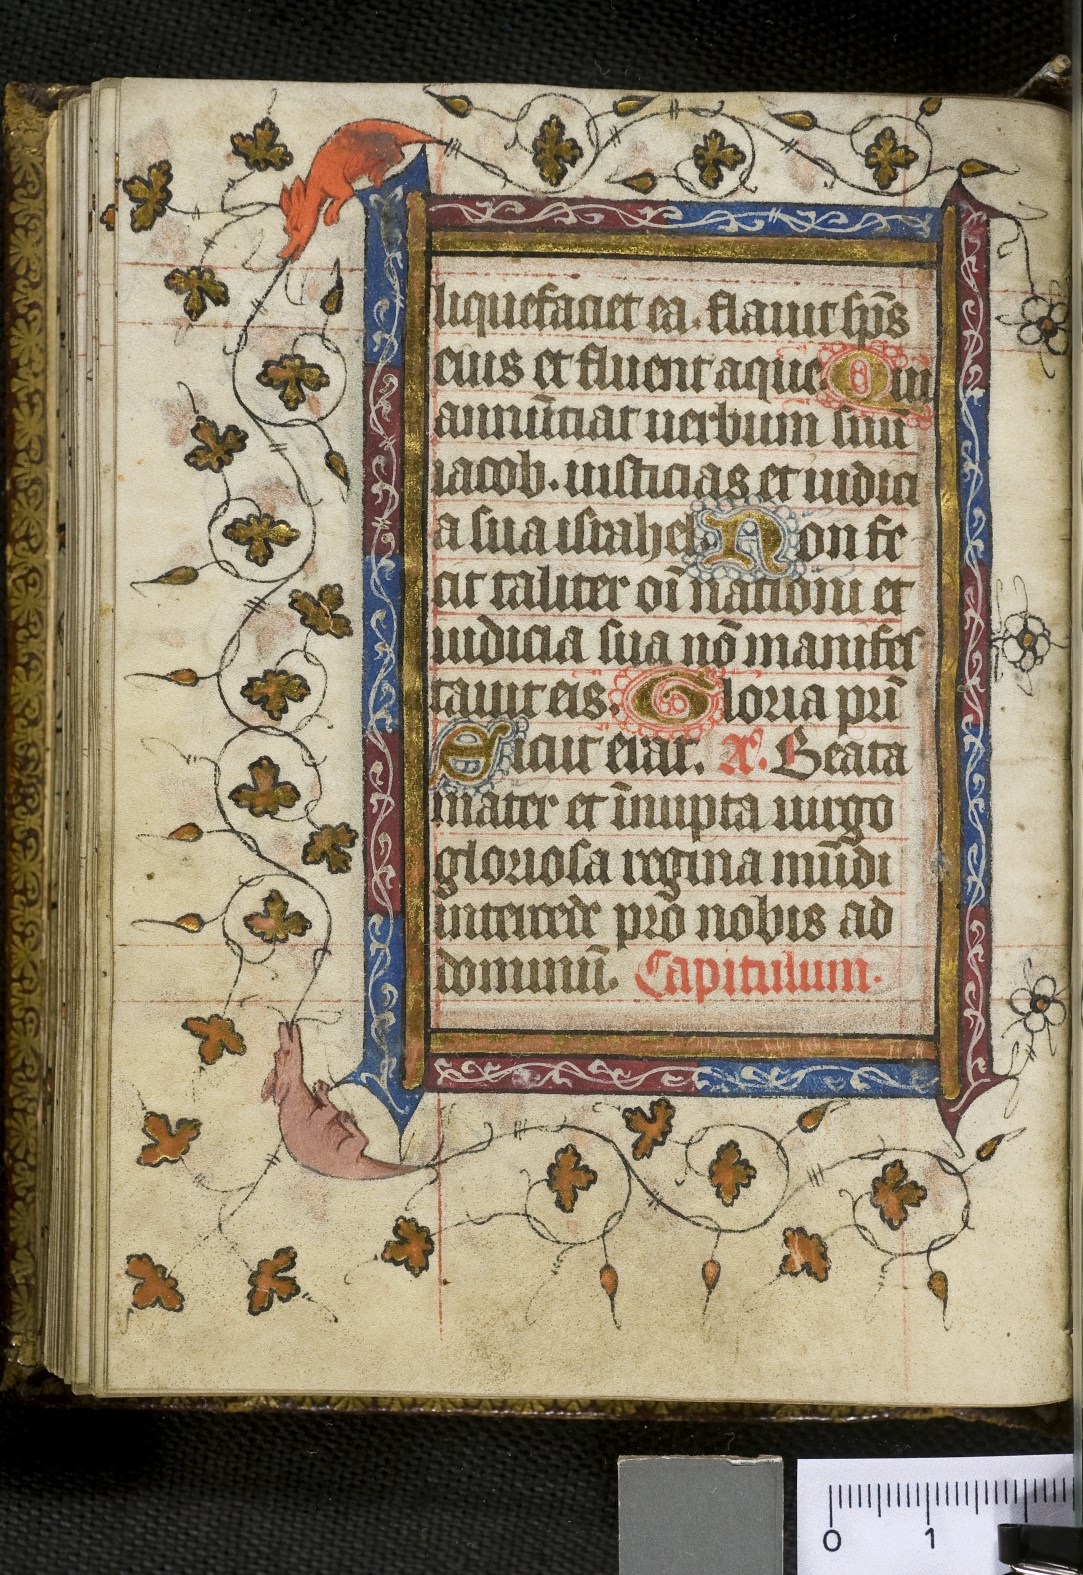 liquefaciet ea. flauit sp̄s
eius et fluent aque. Qui
annūciat uerbum suū
iacob. iusticias et iudici
a sua israhel. Non fe-
cit taliter oī nationi et
iudicia sua nō manifes
tauit eis. Gloria pri̅
Sicut erat. A̅. Beata
mater et īnupta uirgo
gloriosa regina mūdi
intercede pro nobis ad
dominū. Capitulum.
0 1